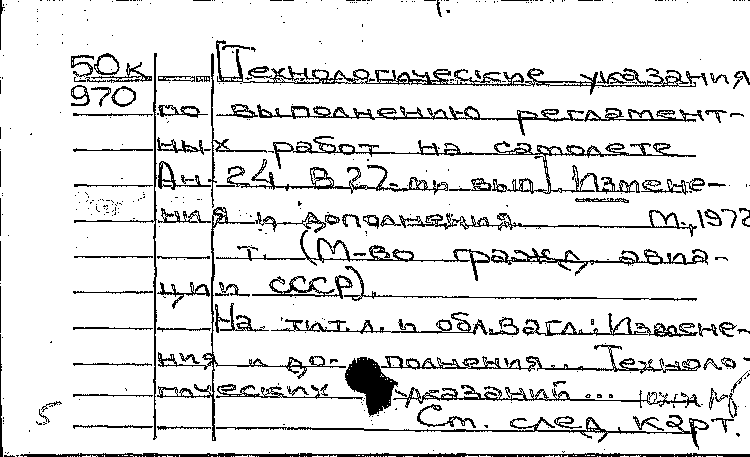 50к [Технологические указания
970 по выполнению регламент-
ных работ на самолете
Ан-24. В 22-ти вып]. Измене-
ния и дополнения. М., 1972
т. (М-во гражд. авиа-
ции СССР).
На тит. л. и обл. загл.: Измене-
ния и до- полнения... Техноло-
гических указаний...
5 Ст. след. карт.